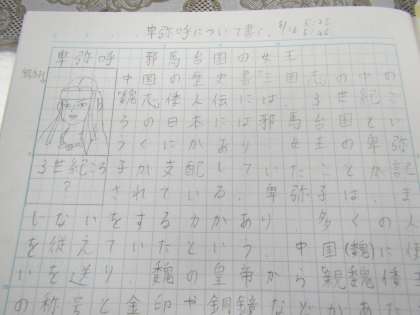 卑弥呼について書く。
卑弥呼 邪馬台国の女王
中国の歴史書三国志の中の
魏志倭人伝には、3世紀ご
ろの日本には邪馬台国とい
うくにがあり 女王の卑弥
3世紀ごろ
?
子が支配していたことが記
されている。卑弥子は、ま
いないをする力があり 多くの人
を従えていたという。中国(魏)に使
いを送り、魏の皇帝から親魏倭王
の称号と金印や銅鏡などがあた